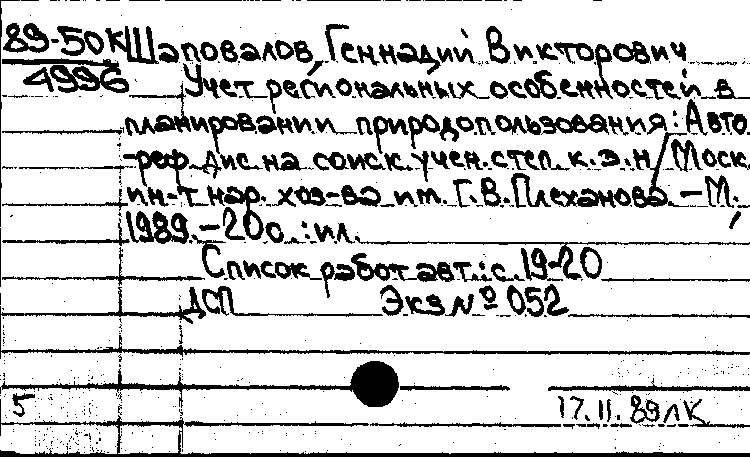 89-50К Шаповалов, Геннадий Викторович
4996 Учет региональных особенностей в
планировании природопользования: Авто
-реф. дис. на соиск. учен. степ. к.э.н / Моск.
ин-т нар. хоз-ва им. Г. В. Плеханова. – М.,
1989. – 20 с. : ил.
Список работ авт.: с. 19-20
ДСП Экз № 052
5 17.11.89 ЛК